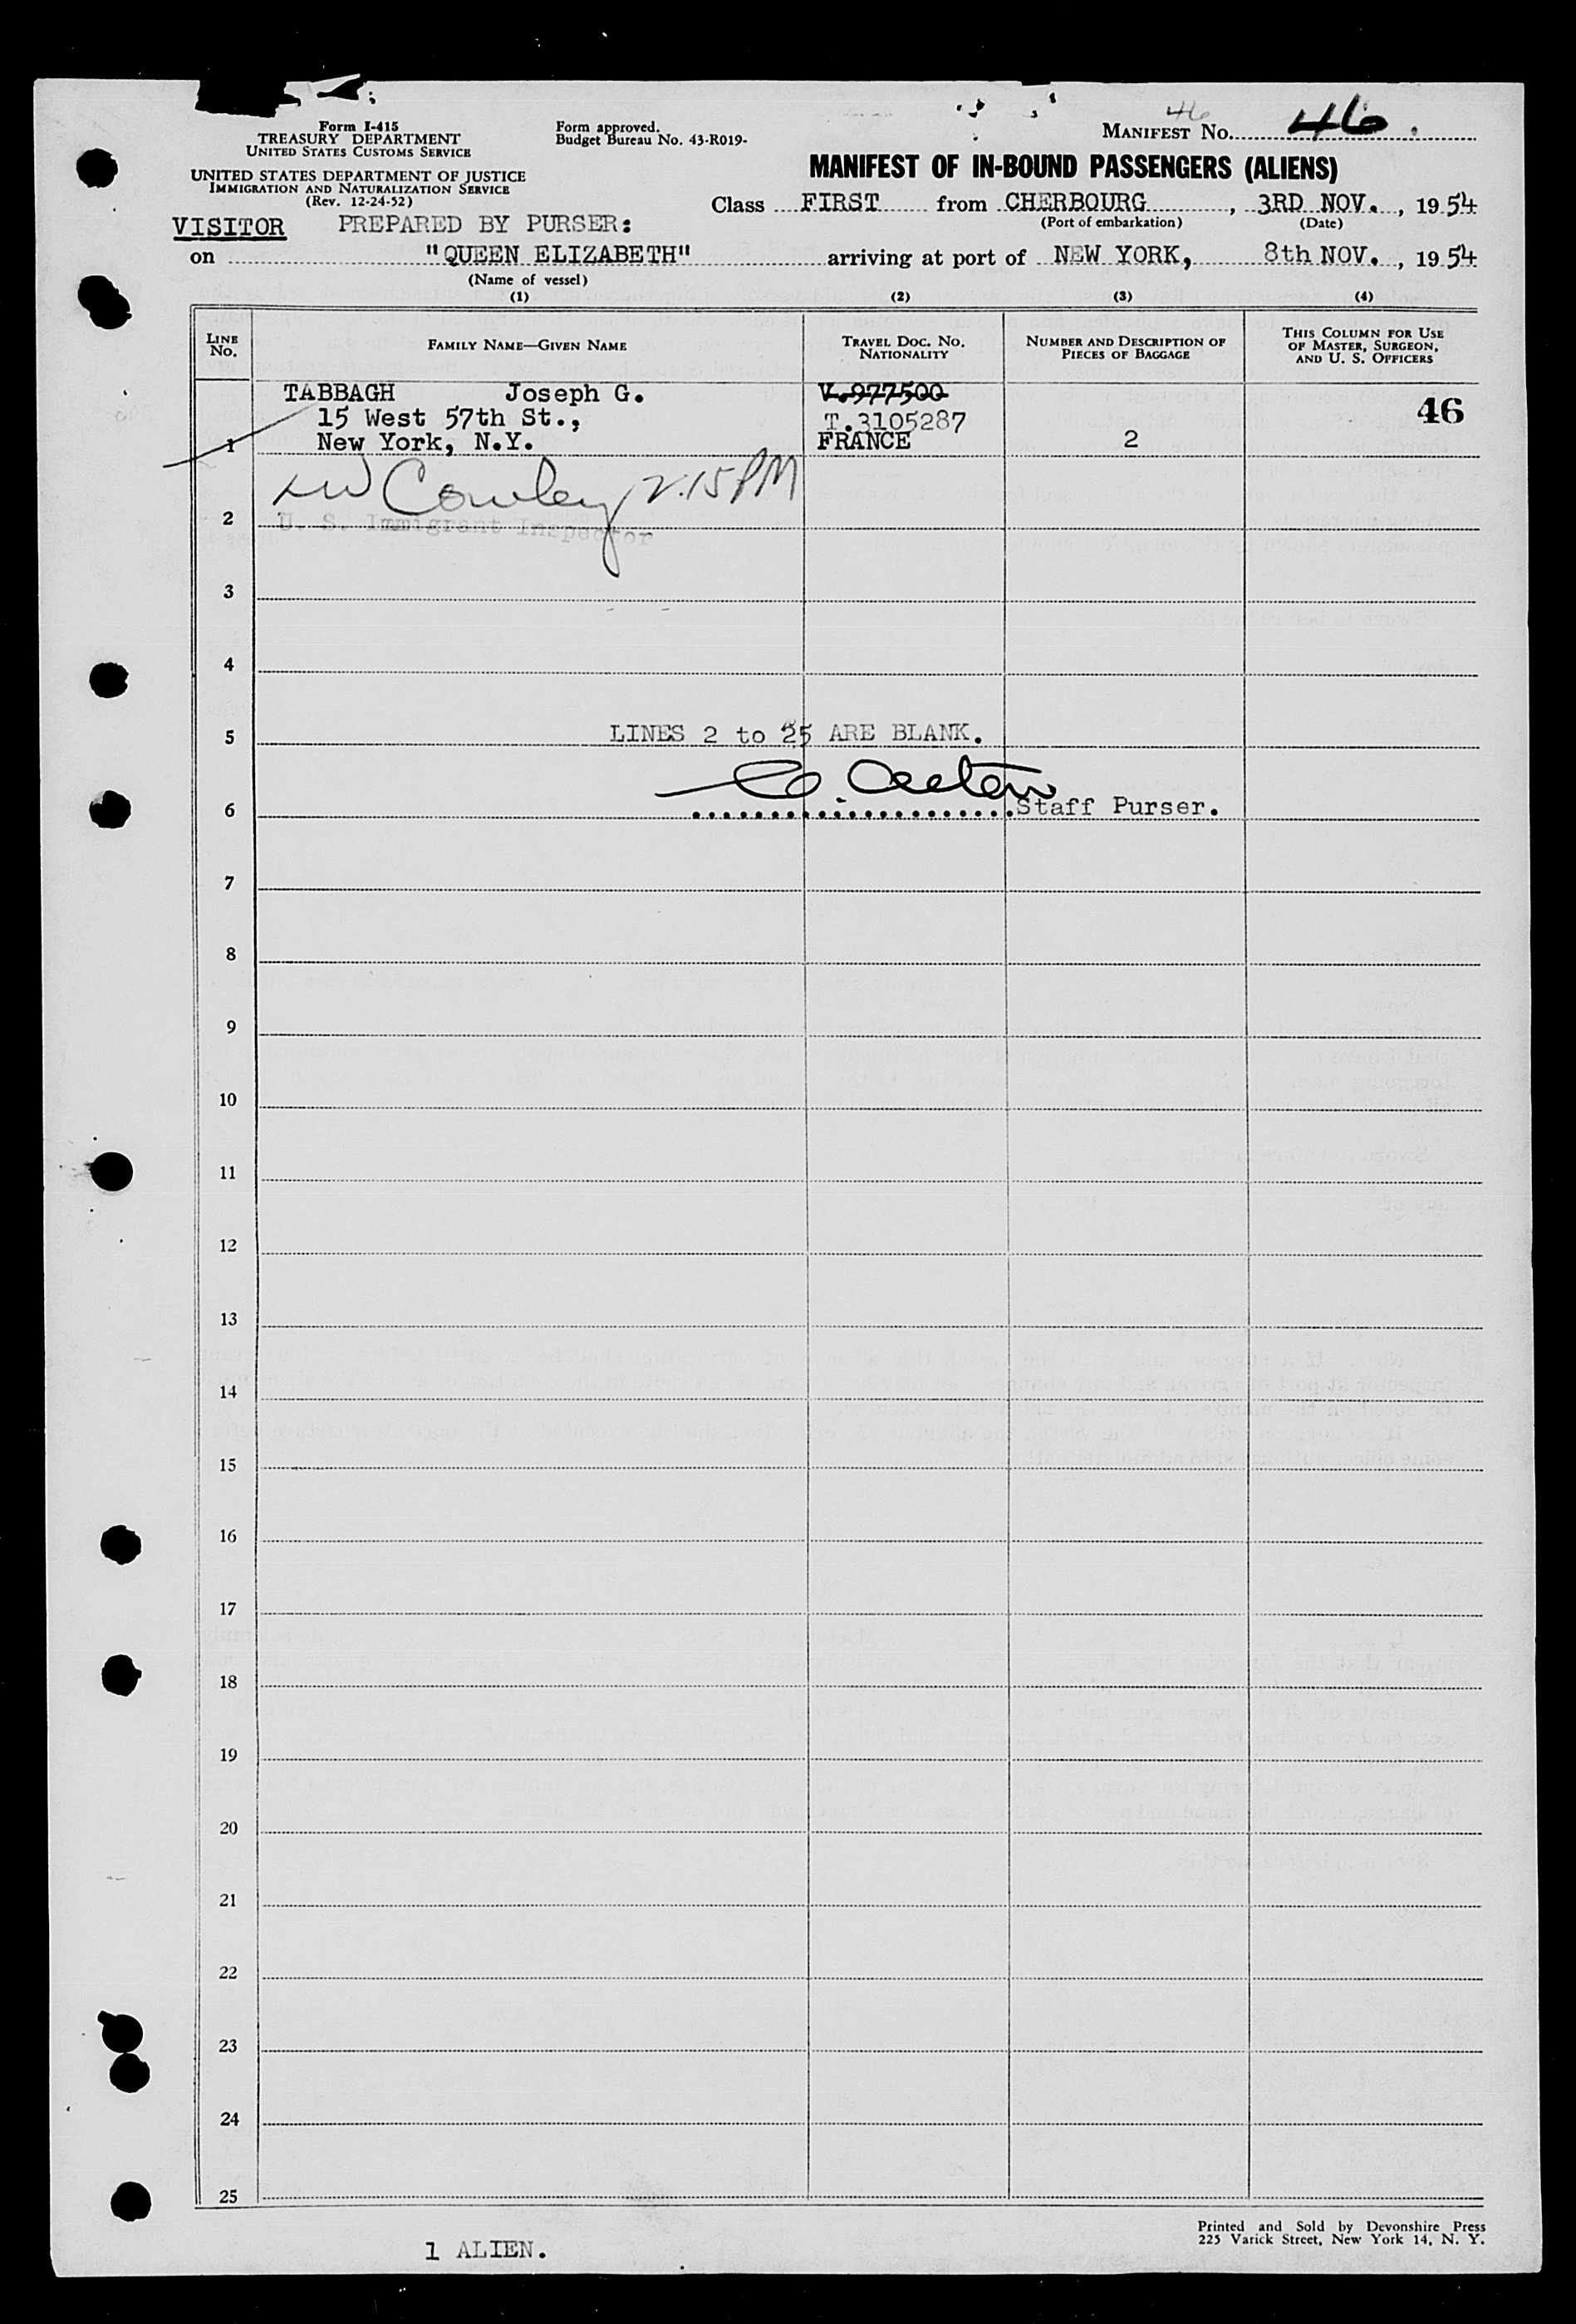 Form I-415
TREASURY DEPARTMENT
UNITED STATES CUSTOMS SERVICE
UNITED STATES DEPARTMENT OF JUSTICE
IMMIGRATION AND NATURALIZATION SERVICE
(Rev. 12-24-52)
Form approved.
Budget Bureau No. 43-R019-
46
MANIFEST No. 46.
MANIFEST OF IN-BOUND PASSENGERS (ALIENS)
Class FIRST from CHERBOURG, 3RD NOV., 1954
(Port of embarkation) (Date)
VISITOR PREPARED BY PURSER:
on "QUEEN ELIZABETH" arriving at port of NEW YORK, 8th NOV., 1954
(Name of vessel)
(1) (2) (3) (4)
LINE No. FAMILY NAME—GIVEN NAME TRAVEL DOC. No. NATIONALITY NUMBER AND DESCRIPTION OF PIECES OF BAGGAGE THIS COLUMN FOR USE OF MASTER, SURGEON, AND U. S. OFFICERS
TABBAGH Joseph G. V.977500 46
15 West 57th St., T.3105287
1 New York, N.Y. FRANCE 2
Cowley 2.15 PM
2 U. S. Immigrant Inspector
3
4
5 LINES 2 to 25 ARE BLANK.
6 Staff Purser.
7
8
9
10
11
12
13
14
15
16
17
18
19
20
21
22
23
24
25
Printed and Sold by Devonshire Press
225 Varick Street, New York 14, N. Y.
1 ALIEN.